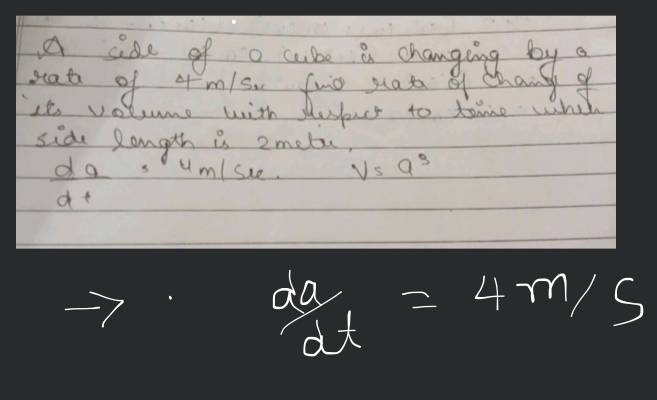 A side of a cube is changing by a
rate of 4m/sec find rate of change of
its volume with respect to time when
side length is 2 metre.
da = 4m/sec. V= a³
dt
→ . da/dt = 4m/s